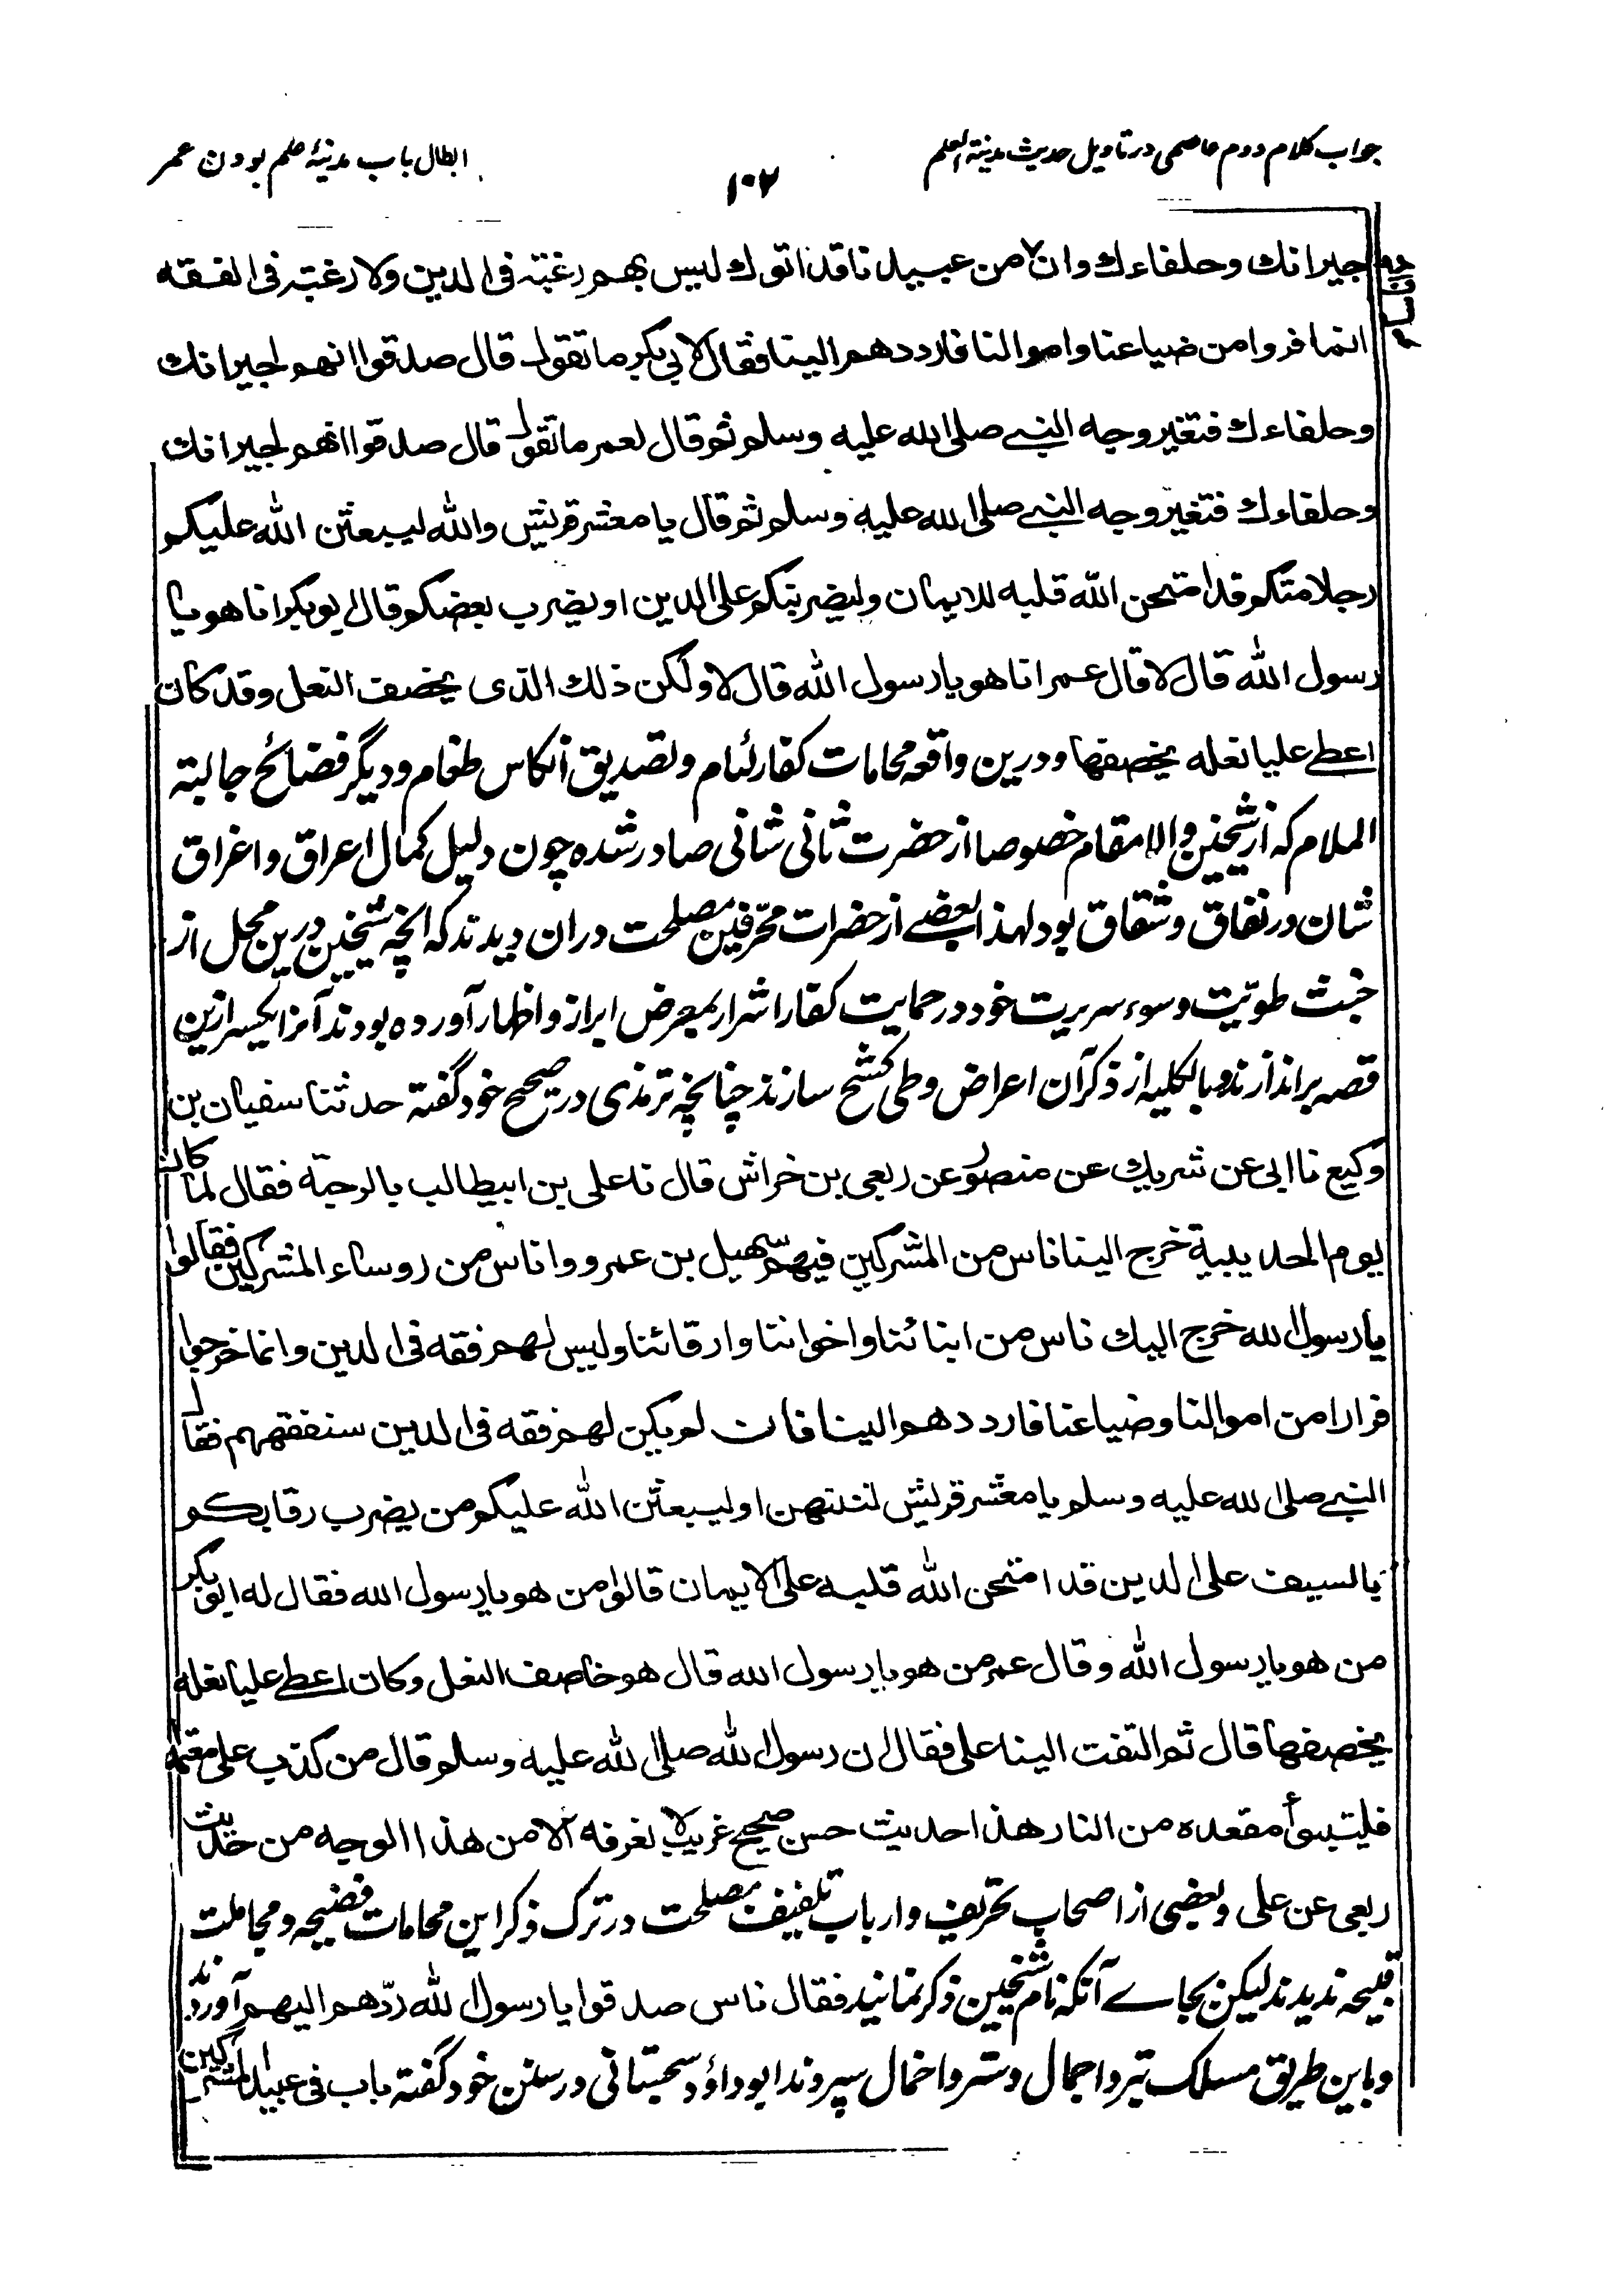 جواب کلام دوم عاصمی در تاویل حدیث مدینة العلم
۱۰۲
ابطال باب مدینۂ علم بودن عمر
جيرانك وحلفاءك وان من عبيدنا قد اتوك ليس بهم رغبة فى الدين ولا رغبة فى الفقه
انما فروا من ضياعنا واموالنا فارددهم الينا فقال لابى بكر ما تقول قال صدقوا انهم لجيرانك
وحلفاءك فتغير وجه النبى صلى الله عليه وسلم ثم قال لعمر ما تقول قال صدقوا انهم لجيرانك
وحلفاءك فتغير وجه النبى صلى الله عليه وسلم ثم قال يا معشر قريش والله ليبعثن الله عليكم
رجلا منكم قد امتحن الله قلبه للايمان وليضربنكم على الدين او يضرب بعضكم قال ابو بكر انا هو يا
رسول الله قال لا قال عمر انا هو يا رسول الله قال لا ولكن ذلك الذى يخصف النعل وقد كان
اعطى عليا نعله يخصفها و درین واقعه محامات کفار لئام و تصدیق انکاس طغام و دیگر فضائح جالبتہ
الملام که از شیخین والامقام خصوصا از حضرت ثانی شانی صادر شده چون دلیل کمال اعراق و اغراق
شان در نفاق و شقاق بود لهذا بعضے از حضرات محرفین مصلحت دران دیدند که آنچه شیخین درین محل از
خبث طویّت و سوء سریرت خود در حمایت کفار اشرار بمعرض ابراز و اظهار آورده بودند آنرا یکسر ازین
قصه براندازند و بالکلیه از ذکر آن اعراض و طی کشح سازند چنانچه ترمذی در صحیح خود گفته حدثنا سفيان بن
وكيع نا ابى عن شريك عن منصور عن ربعى بن خراش قال نا على بن ابيطالب بالرحبة فقال لما كان
يوم الحديبية خرج الينا ناس من المشركين فيهم سهيل بن عمرو واناس من روساء المشركين فقالوا
يا رسول الله خرج اليك ناس من ابنائنا واخواننا وارقائنا وليس لهم فقه فى الدين وانما خرجوا
فرارا من اموالنا وضياعنا فارددهم الينا فان لم يكن لهم فقه فى الدين سنفقههم فقال
النبى صلى الله عليه وسلم يا معشر قريش لتنتهن او ليبعثن الله عليكم من يضرب رقابكم
بالسيف على الدين قد امتحن الله قلبه على الايمان قالوا من هو يا رسول الله فقال له ابو بكر
من هو يا رسول الله وقال عمر من هو يا رسول الله قال هو خاصف النعل وكان اعطى عليا نعله
يخصفها قال ثم التفت الينا على فقال ان رسول الله صلى الله عليه وسلم قال من كذب على متعمدا
فليتبوأ مقعده من النار هذا حديث حسن صحيح غريب لا نعرفه الا من هذا الوجه من حديث
ربعى عن على و بعضی از اصحاب تحریف و ارباب تلفیف مصلحت در ترک ذکر این محامات فضیحه و مجاملت
قبیحه ندیدند لیکن بجاے آنکه نام شیخین ذکر نمایند فقال ناس صدقوا يا رسول الله ردّهم اليهم آوردند
و باین طریق مسلک تیر و اجمال و ستر و اخمال سپردند ابو داؤد سجستانی در سنن خود گفته باب فى عبيد المشركين